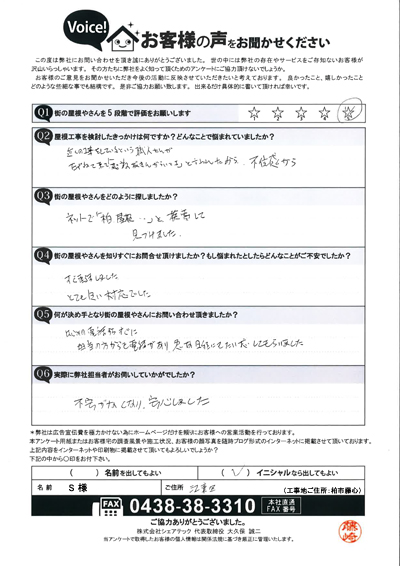 Voice!
お客様の声をお聞かせください
この度は弊社にお問い合わせを頂き誠にありがとうございました。世の中には弊社の存在やサービスをご存知ないお客様が
沢山いらっしゃいます。その方たちに弊社をよく知って頂くためのアンケートにご協力頂けないでしょうか。
お客様のご意見をお聞かせいただき今後の活動に反映させていただきたいと考えております。良かったこと、嬉しかったこと
どのような些細な事でも結構です。是非ご協力お願い致します。出来るだけ具体的に書いて頂ければ幸いです。
Q1 街の屋根やさんを5段階で評価をお願いします
Q2 屋根工事を検討したきっかけは何ですか?どんなことで悩まれていましたか?
Q3 街の屋根やさんをどのように探しましたか?
ネットで「柏 屋根 …」と検索して
見つけました
Q4 街の屋根やさんを知りすぐにお問合せ頂けましたか?もし悩まれたとしたらどんなことがご不安でしたか?
すぐ電話しました
とても良い対応でした
Q5 何が決め手となり街の屋根やさんにお問い合わせ頂きましたか?
Q6 実際に弊社担当者がお伺いしていかがでしたか?
不安がなくなり、安心しました
*弊社は広告宣伝費を極力かけない為にホームページだけを頼りにお客様への営業活動を行っております。
本アンケート用紙またはお客様宅の調査風景や施工状況、お客様の顔写真を随時ブログ形式のインターネットに掲載させて頂いております。
上記内容をインターネットや印刷物に掲載させて頂いてもよろしいでしょうか?
下記の中から〇印をお付下さい。
( )名前を出してもよい
(✓)イニシャルなら出してもよい
名前 S様 ご住所 (工事地ご住所:柏市藤心)
FAX 0438-38-3310 本社直通 FAX番号
ご協力ありがとうございました。
株式会社シェアテック 代表取締役 大久保 誠二
当アンケートで取得したお客様の個人情報は関係法規に基づき厳正に管理いたします。